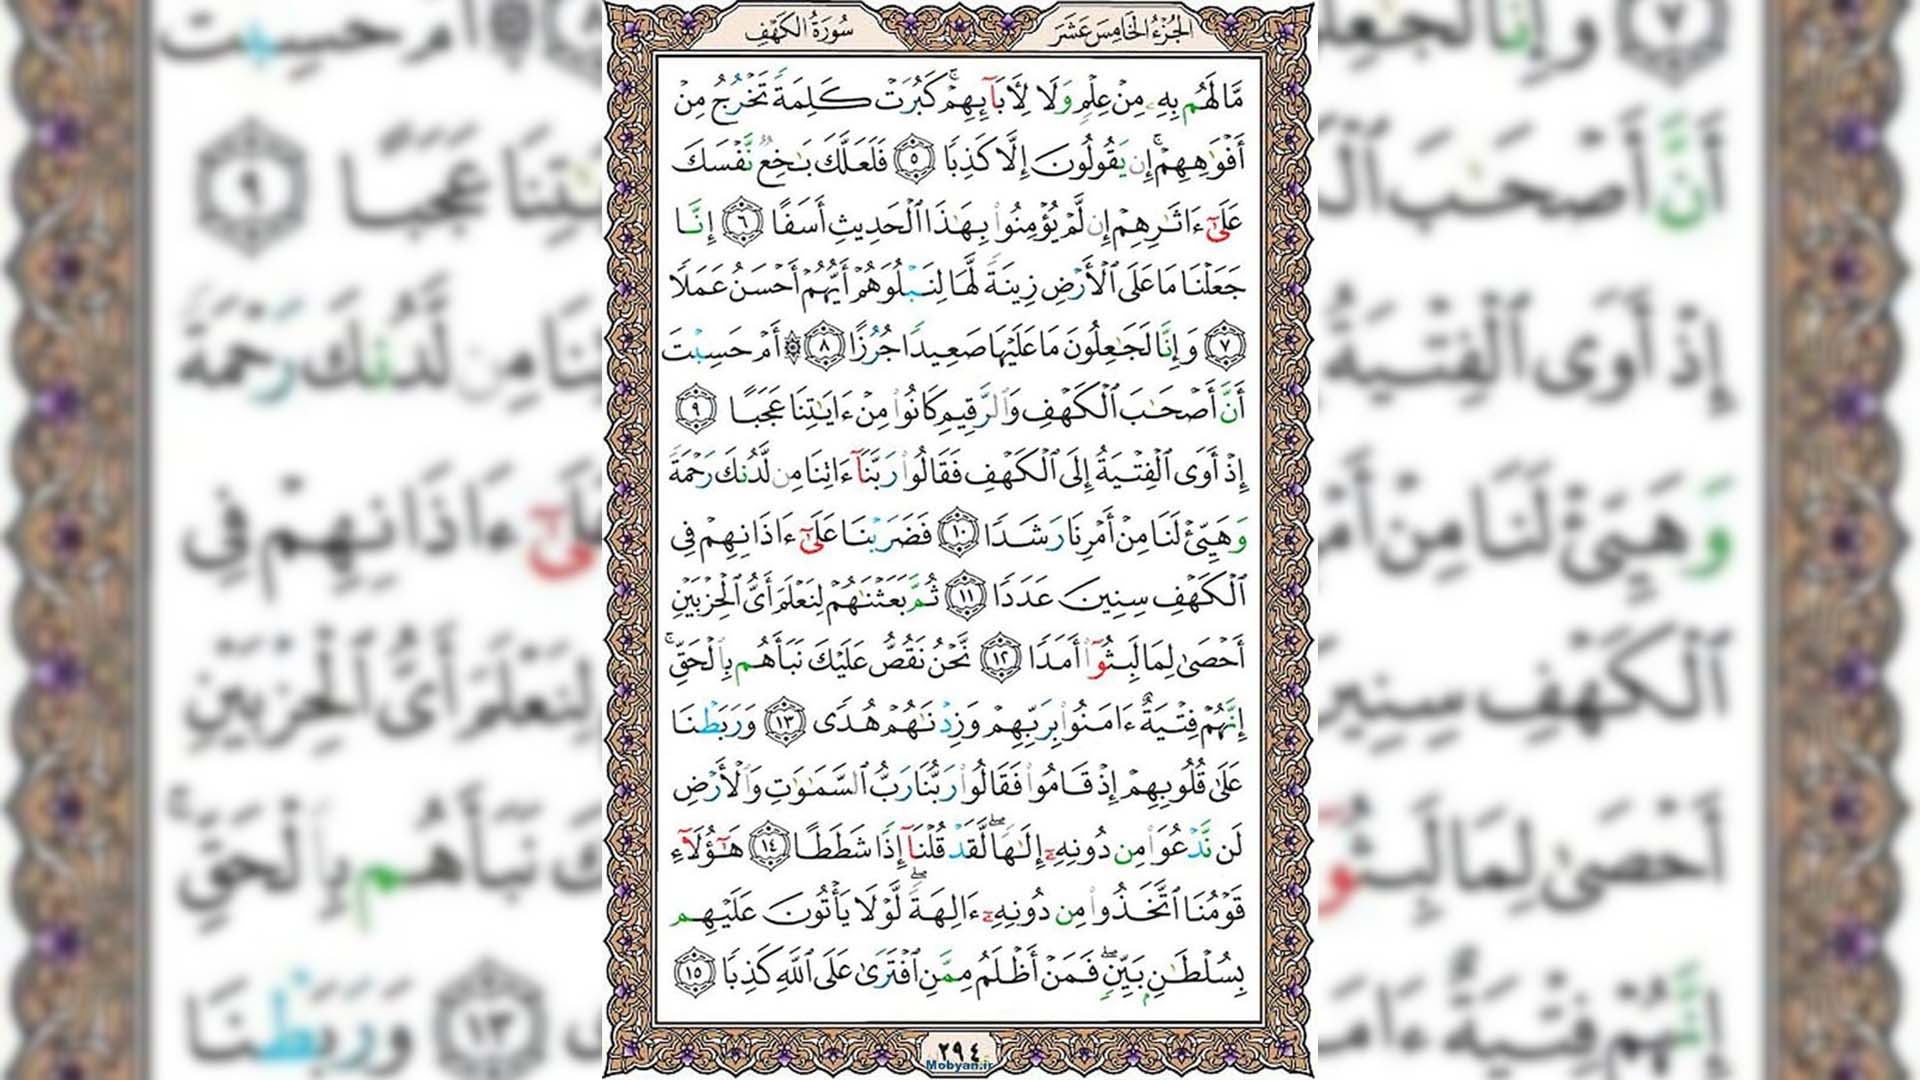 الجُزْءُ الخَامِسَ عَشَرَ
سُورَةُ الكَهْفِ
مَّا لَهُم بِهِۦ مِنْ عِلْمٍ وَلَا لِأٓبَآئِهِمْۚ كَبُرَتْ كَلِمَةً تَخْرُجُ مِنْ
أَفْوَٰهِهِمْۚ إِن يَقُولُونَ إِلَّا كَذِبًا ۝٥ فَلَعَلَّكَ بَـٰخِعٌ نَّفْسَكَ
عَلَىٰٓ ءَاثَـٰرِهِمْ إِن لَّمْ يُؤْمِنُوا۟ بِهَـٰذَا ٱلْحَدِيثِ أَسَفًا ۝٦ إِنَّا
جَعَلْنَا مَا عَلَى ٱلْأَرْضِ زِينَةً لَّهَا لِنَبْلُوَهُمْ أَيُّهُمْ أَحْسَنُ عَمَلًا
۝٧ وَإِنَّا لَجَـٰعِلُونَ مَا عَلَيْهَا صَعِيدًا جُرُزًا ۝٨ ۞ أَمْ حَسِبْتَ
أَنَّ أَصْحَـٰبَ ٱلْكَهْفِ وَٱلرَّقِيمِ كَانُوا۟ مِنْ ءَايَـٰتِنَا عَجَبًا ۝٩
إِذْ أَوَى ٱلْفِتْيَةُ إِلَى ٱلْكَهْفِ فَقَالُوا۟ رَبَّنَآ ءَاتِنَا مِن لَّدُنكَ رَحْمَةً
وَهَيِّئْ لَنَا مِنْ أَمْرِنَا رَشَدًا ۝١٠ فَضَرَبْنَا عَلَىٰٓ ءَاذَانِهِمْ فِى
ٱلْكَهْفِ سِنِينَ عَدَدًا ۝١١ ثُمَّ بَعَثْنَـٰهُمْ لِنَعْلَمَ أَىُّ ٱلْحِزْبَيْنِ
أَحْصَىٰ لِمَا لَبِثُوٓا۟ أَمَدًا ۝١٢ نَّحْنُ نَقُصُّ عَلَيْكَ نَبَأَهُم بِٱلْحَقِّۚ
إِنَّهُمْ فِتْيَةٌ ءَامَنُوا۟ بِرَبِّهِمْ وَزِدْنَـٰهُمْ هُدًى ۝١٣ وَرَبَطْنَا
عَلَىٰ قُلُوبِهِمْ إِذْ قَامُوا۟ فَقَالُوا۟ رَبُّنَا رَبُّ ٱلسَّمَـٰوَٰتِ وَٱلْأَرْضِ
لَن نَّدْعُوَا۟ مِن دُونِهِۦٓ إِلَـٰهًاۖ لَّقَدْ قُلْنَآ إِذًا شَطَطًا ۝١٤ هَـٰٓؤُلَآءِ
قَوْمُنَا ٱتَّخَذُوا۟ مِن دُونِهِۦٓ ءَالِهَةًۖ لَّوْلَا يَأْتُونَ عَلَيْهِم
بِسُلْطَـٰنٍۭ بَيِّنٍۖ فَمَنْ أَظْلَمُ مِمَّنِ ٱفْتَرَىٰ عَلَى ٱللَّهِ كَذِبًا ۝١٥
٢٩٤
Mobyan.ir